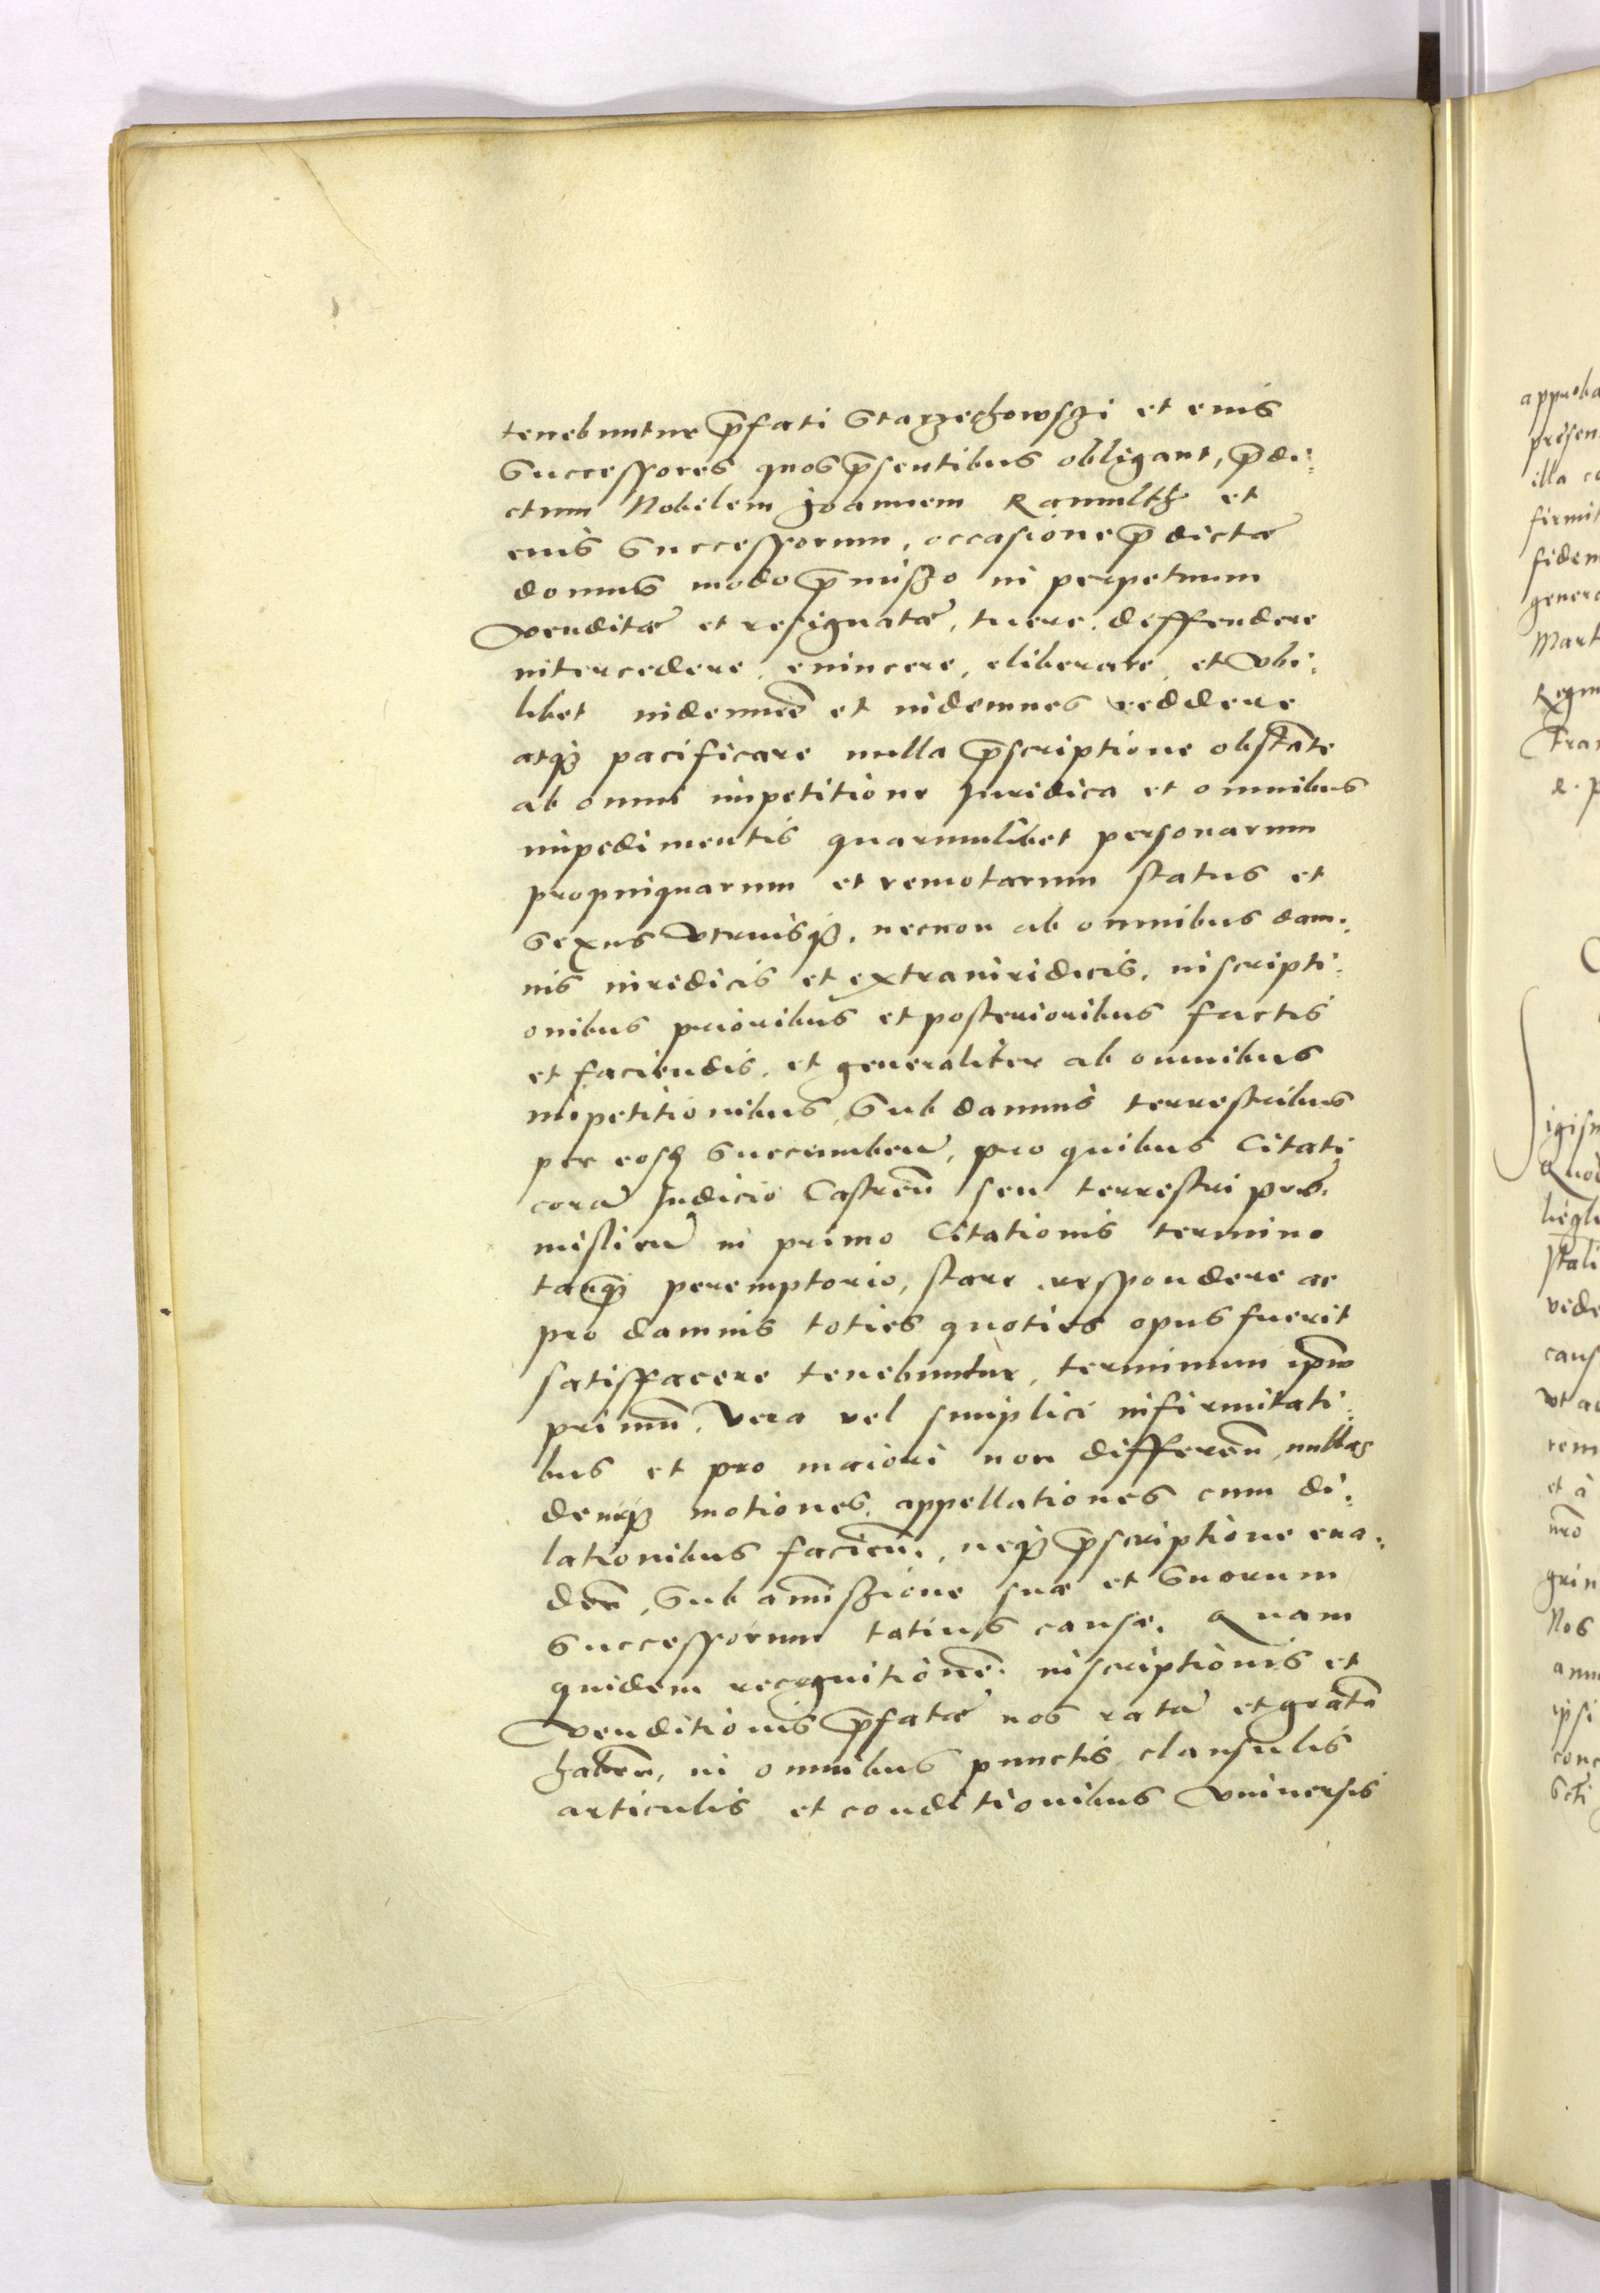 tenebuntur p̄fati Starzechowski et eius
Successores quos p̄sentibus obligant, p̄di:
ctum Nobilem Joannem Ramulth et
eius Successorum, occasione p̄dictæ
domus modo p̄misso in perpetuum
venditæ et resignatæ, tuere, deffendere
intercedere, euincere, eliberare, et vbi:
libet indemnē et indemnes reddere
atq3 pacificare nulla p̄scriptione obstāte
ab omni impetitione Juridica et omnibus
impedimentis quarumlibet personarum
propinquarum et remotarum status et
Sexus vtriusq3, necnon ab omnibus dam:
nis iuridicis et extraiuridicis, inscripti:
onibus prioribus et posterioribus factis
et faciendis, et generaliter ab omnibus
impetitionibus, Sub damnis terrestribus
per eosd Succumbeñ, pro quibus Citati
corā Judicio Castreñ seu terrestri præ:
mislieñ in primo Citationis termino
tanq3 peremptorio, stare respondere ac
pro damnis toties quoties opus fuerit
satisfacere tenebuntur, terminum ip̄m
primū, vera vel simplici infirmitati:
bus et pro maiori non differeñ, nullas
deniq3 motiones, appellationes cum di:
lationibus facieñ, neq3 p̄scriptione eua:
deñ, Sub amissione suæ et Suorum
Successorum totius causæ. Quam
quidem recognitionē inscriptionis et
venditionis p̄fatæ nos ratā et gratā
habeñ, in omnibus punctis clausulis
articulis et conditionibus vniuersis
approba
presen
illa co
firmit
fidem
genera
Mart
Regni
Fran
igism
Quod
stali
vide
caus
vt ac
rem
et à
nr̄o
grin
Nos
ann
ipsi
conc